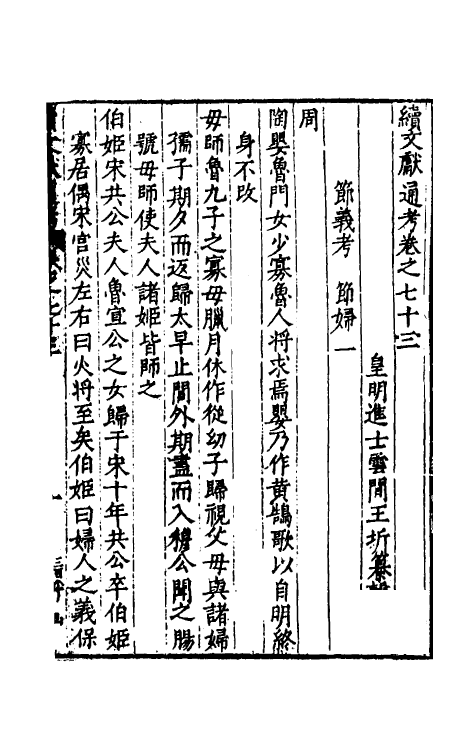 續文獻通考卷之七十三
皇明進士雲間王圻纂
節義考　節婦一
周
陶嬰魯門女少寡魯人將求焉嬰乃作黄鵠歌以自明終
身不改
毋師魯九子之寡母臘月休作從幼子歸視父母與諸婦
孺子期夕而返歸太早止閭外期盡而入穆公聞之賜
號母師使夫人諸姬皆師之
伯姬宋共公夫人魯宣公之女歸于宋十年共公卒伯姬
寡居偶宋宫災左右曰火將至矣伯姬曰婦人之義保